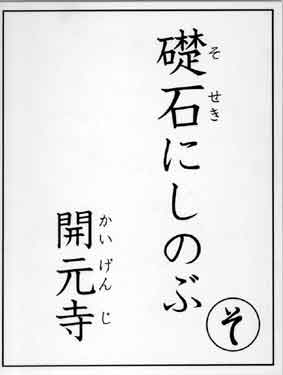 礎石にしのぶ
そせき
開元寺
かいげんじ
そ